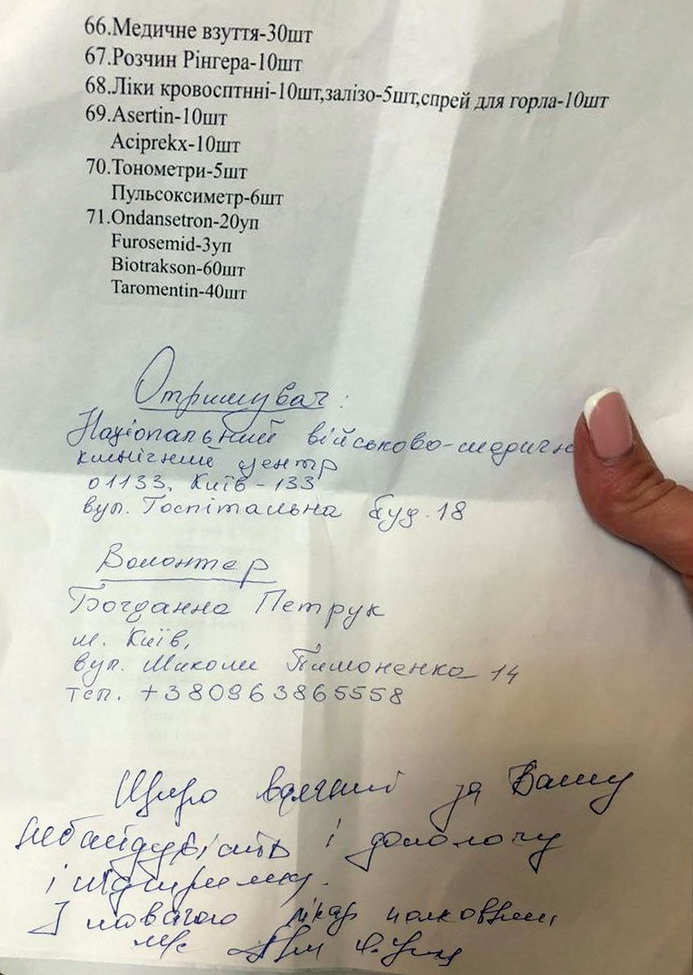 66.Медичне взуття-30шт
67.Розчин Рінгера-10шт
68.Ліки кровосптнні-10шт,залізо-5шт,спрей для горла-10шт
69.Asertin-10шт
Aciprekx-10шт
70.Тонометри-5шт
Пульсоксиметр-6шт
71.Ondansetron-20уп
Furosemid-3уп
Biotrakson-60шт
Taromentin-40шт
Отримувач:
Національний військово-медичн
клінічний центр
01133, Київ-133
вул. Госпітальна буд. 18
Волонтер
Богданна Петрук
м. Київ,
вул. Миколи Пимоненка 14
тел. +380963865558
Щиро вдячний за Вашу
небайдужість і допомогу
і підтримку.
З повагою лікар полковник
м/с